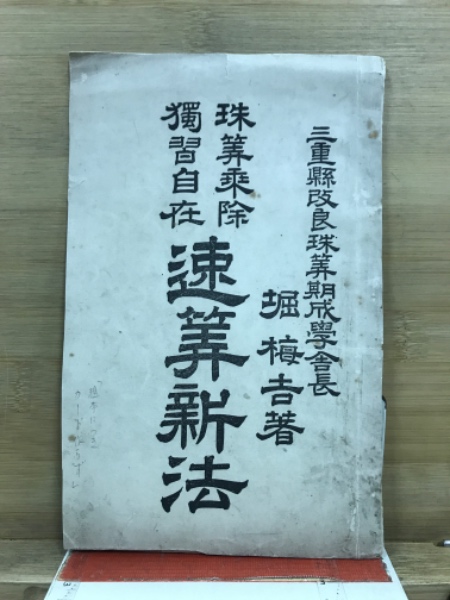 三重縣改良珠筭期成學舍長
堀梅吉著
珠筭乘除
獨習自在
速筭新法